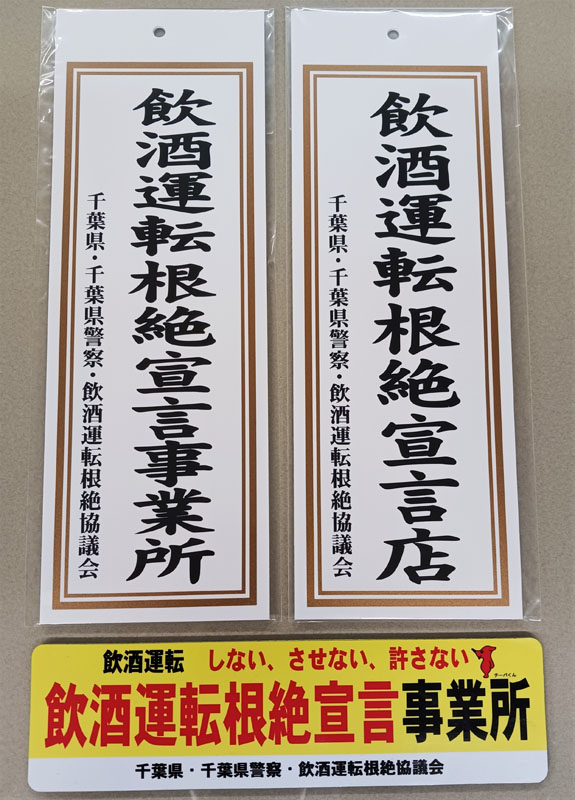 飲酒運転根絶宣言事業所
千葉県・千葉県警察・飲酒運転根絶協議会
飲酒運転根絶宣言店
千葉県・千葉県警察・飲酒運転根絶協議会
飲酒運転 しない、させない、許さない
チーバくん
飲酒運転根絶宣言事業所
千葉県・千葉県警察・飲酒運転根絶協議会